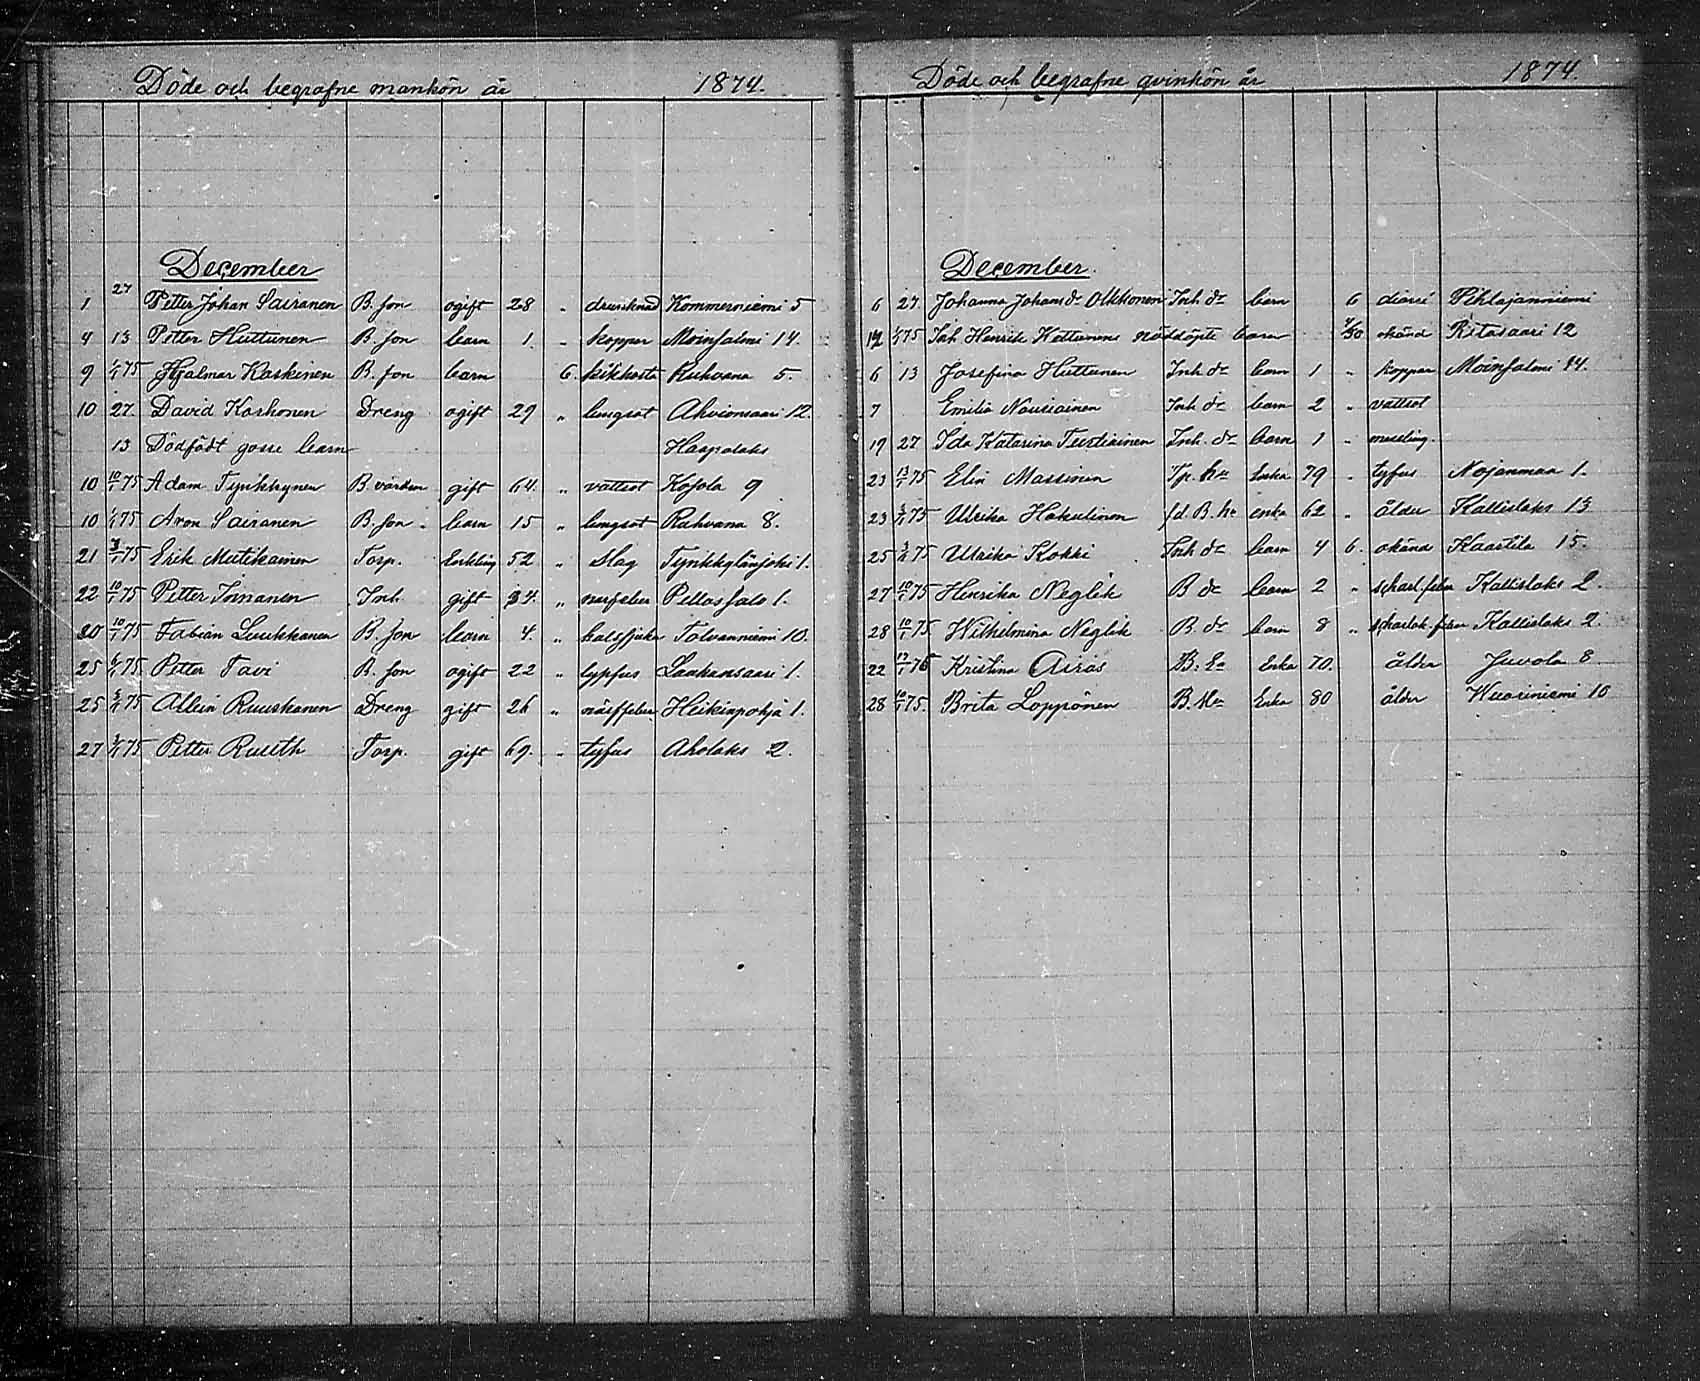 Döde och begrafne mankön år 1874.
December
1 27 Petter Johan Sairanen B. son ogift 28 „ drunknad Kommerniemi 5
4 13 Petter Huttunen B. son barn 1. „ koppor Moinsalmi 14.
9 1/1 75 Hjalmar Kaskinen B. son barn 6. kikhosta Ruhvana 5.
10 27. David Korhonen Dreng ogift 29 „ lungsot Ahvionsaari 12.
13 Dödfödt gosse barn Haapalaks
10 10/1 75 Adam Tynkkynen B. värden gift 64. „ vattsot Kosola 9
10 1/1 75 Aron Sairanen B. son barn 15 „ lungsot Ruhvana 8.
21 3/1 75 Erik Mutikainen Torp. Enkling 52 „ slag Tynkkylänjoki 1.
22 10/1 75 Petter Innanen Inh. gift 34. „ Pellossalo 1.
20 10/1 75 Fabian Luukkanen B. son barn 4. „ halssjuka Tolvanniemi 10.
25 6/1 75. Petter Tavi B. son ogift 22 „ Laukansaari 1.
25 75 Allein Ruuskanen Dreng gift 26 „ Heikinpohja 1.
27 75 Petter Ruuth Torp. gift 69. „ tyfus Aholaks 2.
Döde och begrafne qvinkön år 1874.
December.
6 27. Johanna Johansdr Olkkonen Inh. dr barn 6 diarré Pihlajaniemi
12 1/1 75 Inh Henrik Kettunens nöddöpte barn okänd Ritasaari 12
6 13 Josefina Huttunen Inh dr barn 1 „ koppor Moinsalmi 14.
7 Emilia Nousiainen Inh dr barn 2 „ vattsot
19 27 Ida Katarina Tiistiäinen Inh. dr barn 1 „ messling.
23 13/1 75 Elin Massinen Tp. hu Enka 79 „ tyfus Nojanmaa 1.
23 75 Ulrika Hakulinen fd. B. hu enka 62 „ ålder Kallislaks 13
25 75 Ulrika Kokki Inh dr barn 4 6. okänd Kaartila 15.
27 10/1 75 Henrika Neglik B dr barn 2 „ scharl. feber Kallislaks 2.
28 10/1 75. Wilhelmina Neglik B. dr barn 8 „ scharlak. feber Kallislaks 2.
22 17/1 75 Kristina Airas B. Ea Enka 70. ålder Juvola 8
28 10/1 75. Brita Loppönen B. Mor Enka 80 ålder Kuoriniemi 10